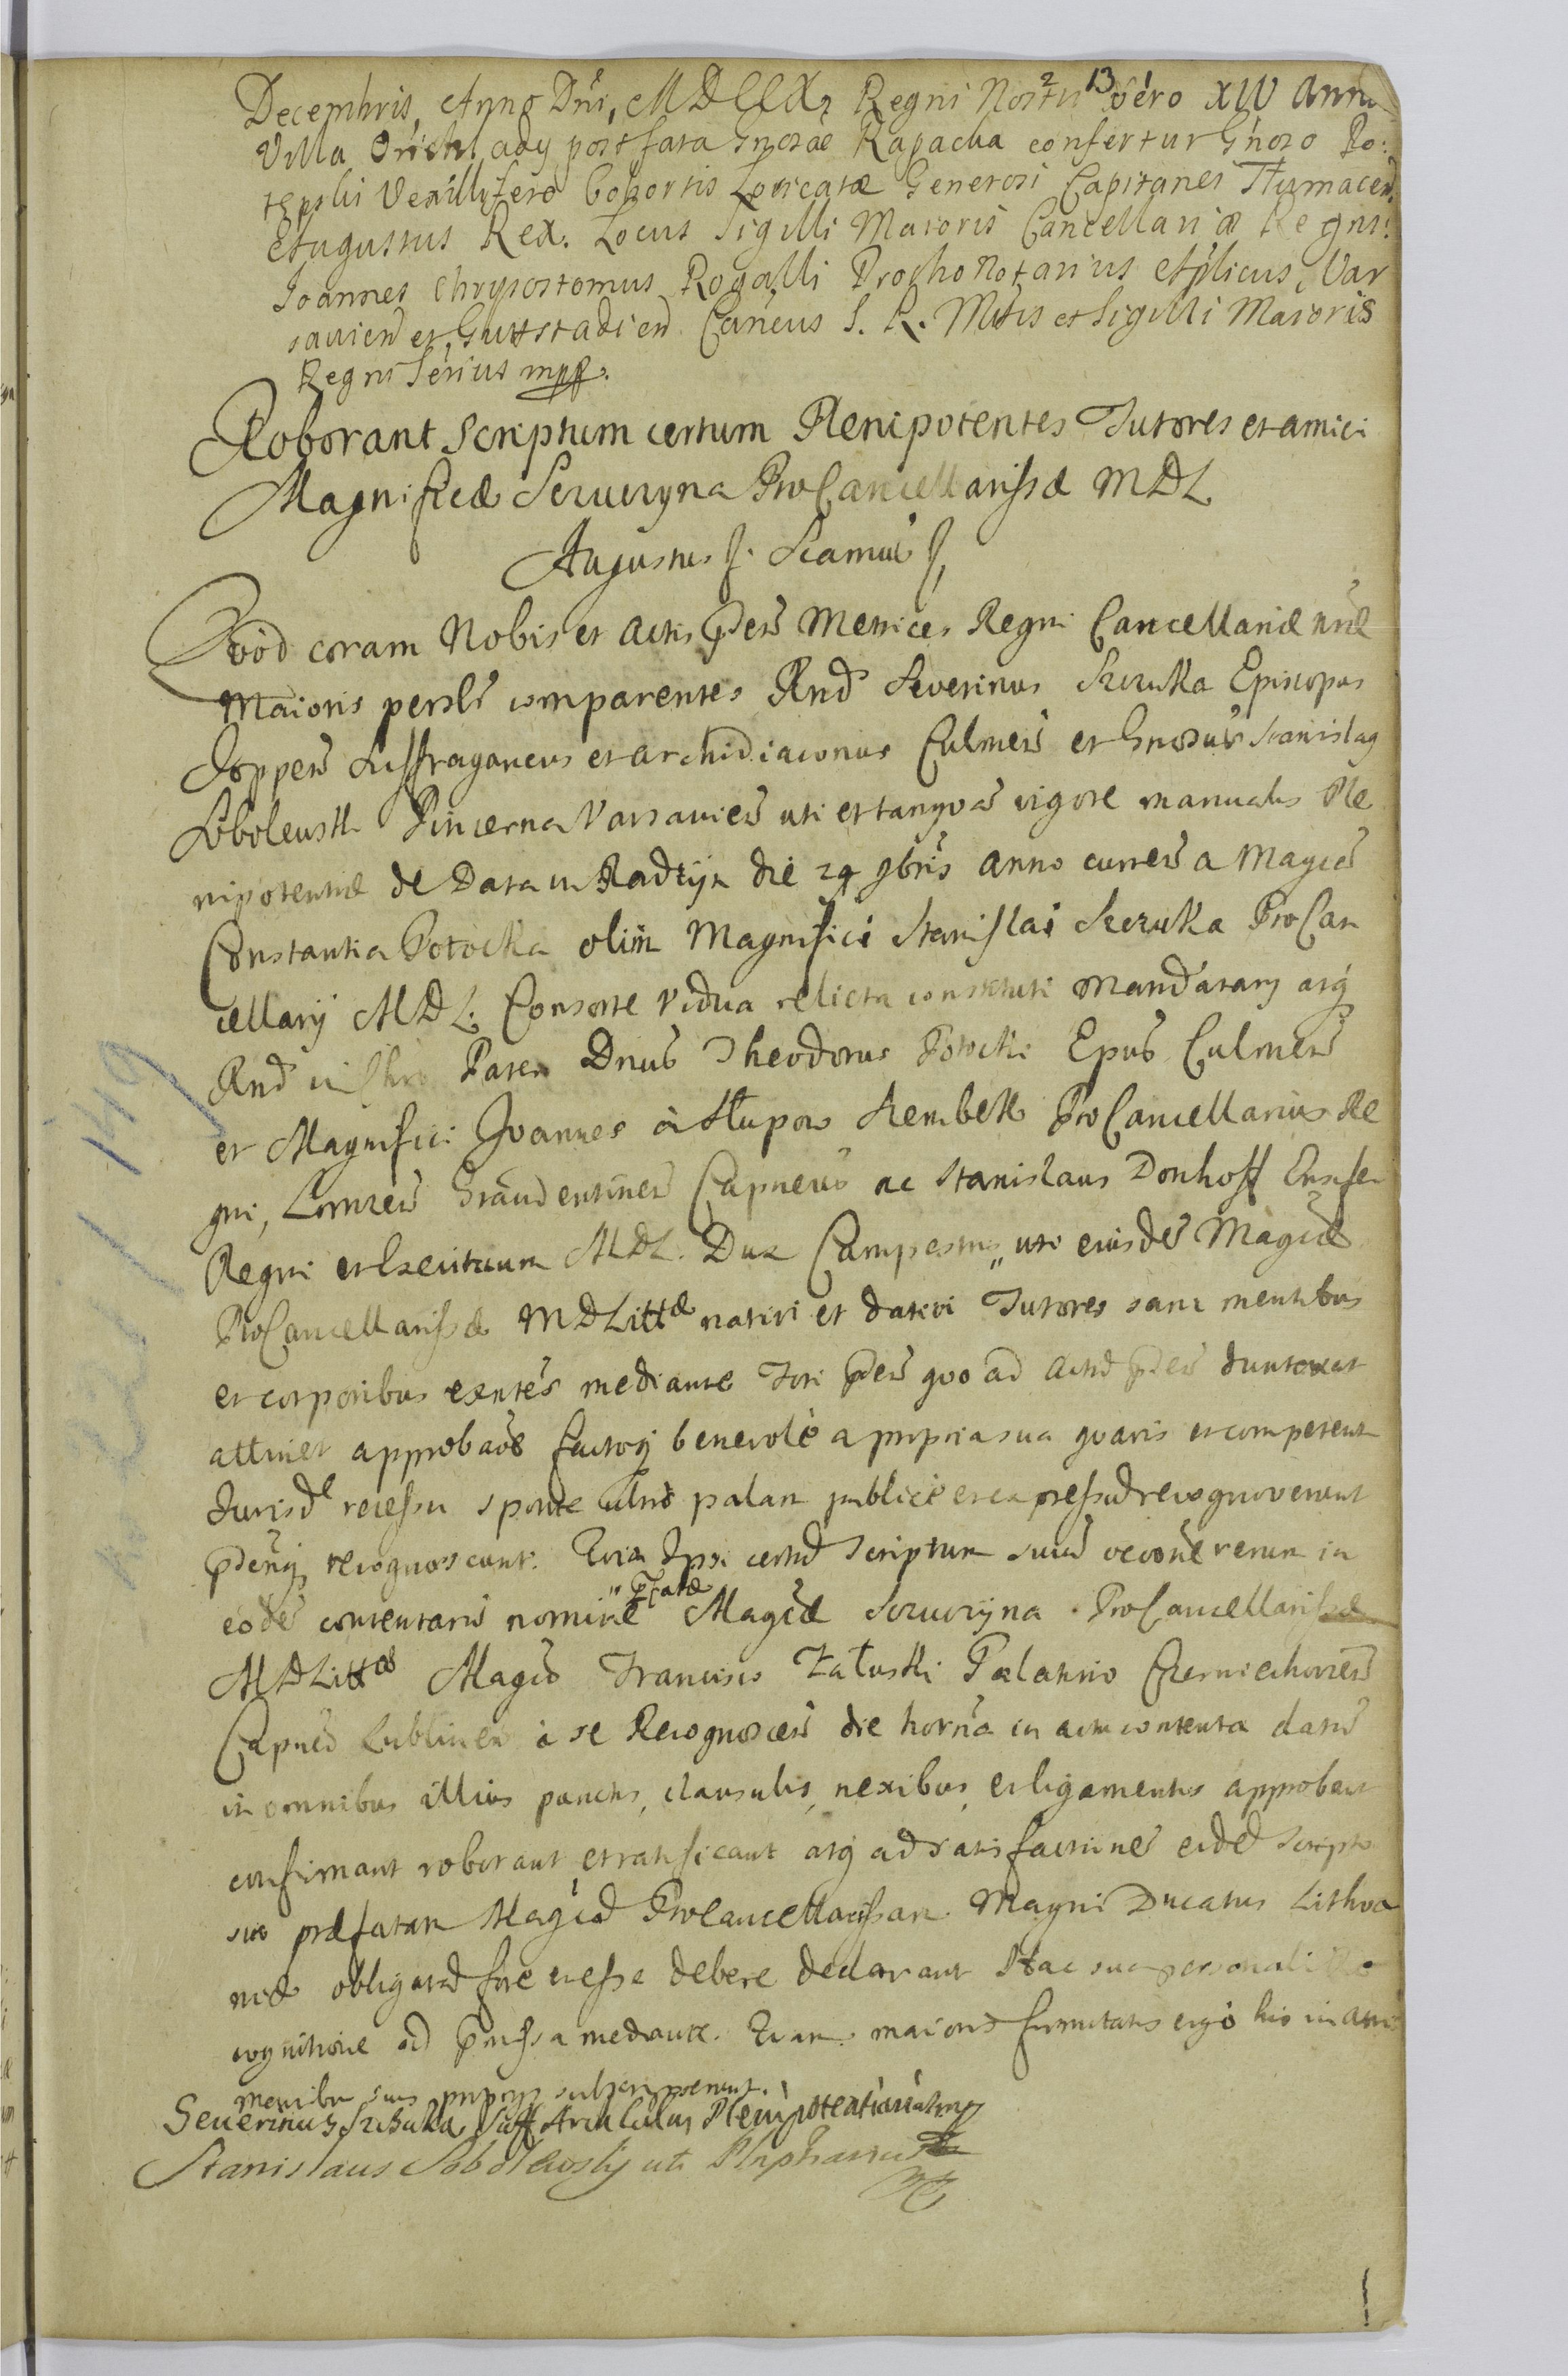 Decembris, Anno Dñi, MDCCX, Regni Nostri 13 2 vero XIV Anno
Villa ady post fata Gnosae Rapacka confertur Gnoso Po:
Vexillifero Cohortis Loricatae Generosi Capitanei Tłumacen.
Augustus Rex. Locus Sigilli Maioris Cancellariae Regni.
Joannes Chrysostomus Rogalli Prothonotarius Aplicus, Var
savien et Guttstadien Canćus S. R. Mtis et Sigilli Maioris
Regni Sčrius mpp.
Roborant Scriptum certum Plenipotentes Tutores et amici
Magnificae Szczuczyna ProCancellarissae MDL
Augustus S. Scamus S,
Quod coram Nobis et Actis Pñs Metrices Regni Cancellariae nrae
Maioris perslr comparentes Rnd Severinus Szczuka Episcopus
Joppeñ Suffraganeus et Archidiaconus Culmeñ et Gnosus Stanislaq
Sobolewski Pincerna Varsavieñ uti et tanqvã vigore manualis Ple
nipotentiae de Data in Radzyn die 29 9bris anno curreñ a Magcã
Constantia Potocka olim Magnifici Stanislai Szczuka ProCan
cellarij MDL. Consorte Vidua relicta constituti Mandatarij atq
Rnd in Chro Pater Dnus Theodorus Potocki Epus Culmeñ
et Magnifici Joannes à Słupow Szembek ProCancellarius Re
gni, Lomzeñ Graudentineñ Capneus ac Stanislaus Donhoff Ensifer
Regni et Exercituum MDL. Dux Campestris, uti eiusdẽ Magcae
ProCancellarissae MDLittae nativi et dativi Tutores sani mentibus
et corporibus exñtes mediante Fori Pñs quo ad Actũ Pñs duntaxat
attinet approbãõe factoq benevolè a propria sua qvavis et competenti
Jurisdẽ recessu sponte ultrò palam publicè et expressè recognoverunt
Pñtq recognoscunt. Quia Ipsi certũ Scriptum suũ rãõne rerum in
eodẽ contentarũ nomine " Pfatae Magcae Szczuczyna ProCancellarissae
MDLittae Magco Francisco Załuski Palatino Czerniechovieñ
Capneo Lublineñ à se Recognosceñ die horña in actu contenta datũ
in omnibus illius punctis, clausulis, nexibus, et ligamentis approbant
confirmant roborant et ratificant atq ad satisfactionẽ eidẽ scripto
suo praefatam Magcã ProCancellarissam Magni Ducatus Lithva
niae obligatã fore et esse debere declarant Hac sua personali Re
cognitione ad Pmissa mediante. Quam maioris firmitatis ergò hic in actis
manibus suis proprijs subscripserunt.
Severinus Szczuka Suff. Arch. Culm. Plenipotentiarius mp
Stanislaus Sobolewsky uti Plnptnarius
mp